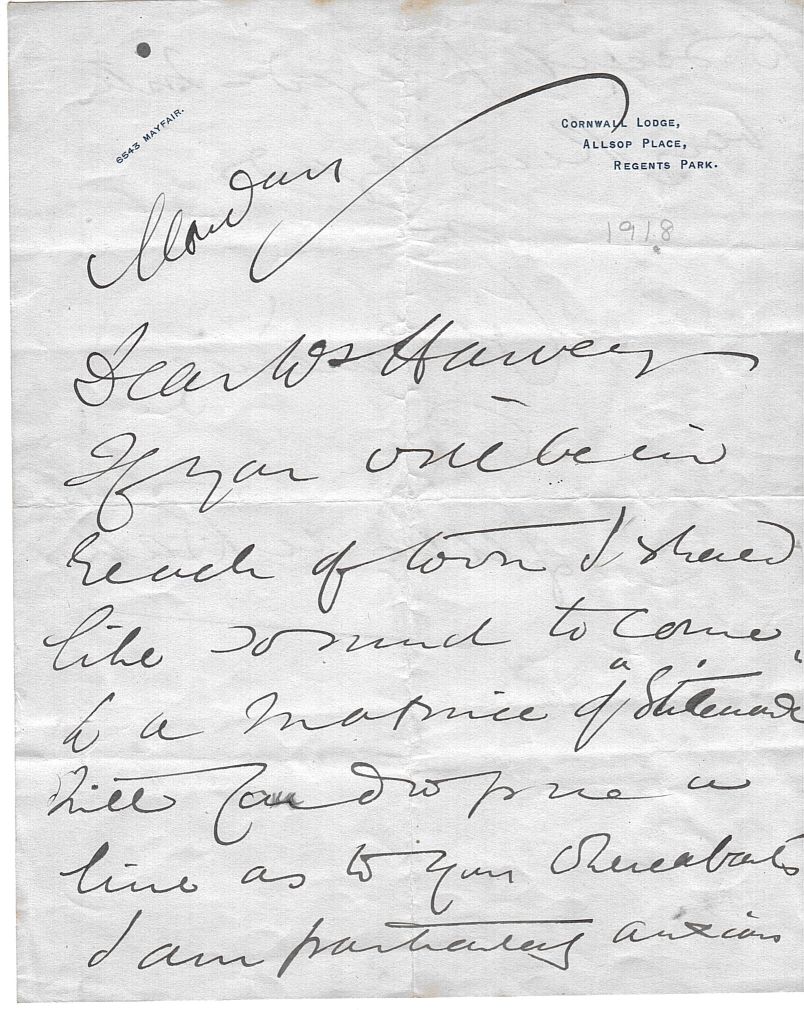 6543 MAYFAIR.
CORNWALL LODGE,
ALLSOP PLACE,
REGENTS PARK.
Monday
1918
Dear Mr Harvey
If you will be in
reach of town I should
like so much to come
to a matinee of "
will you drop me a
line as to your whereabouts
I am particularly anxious